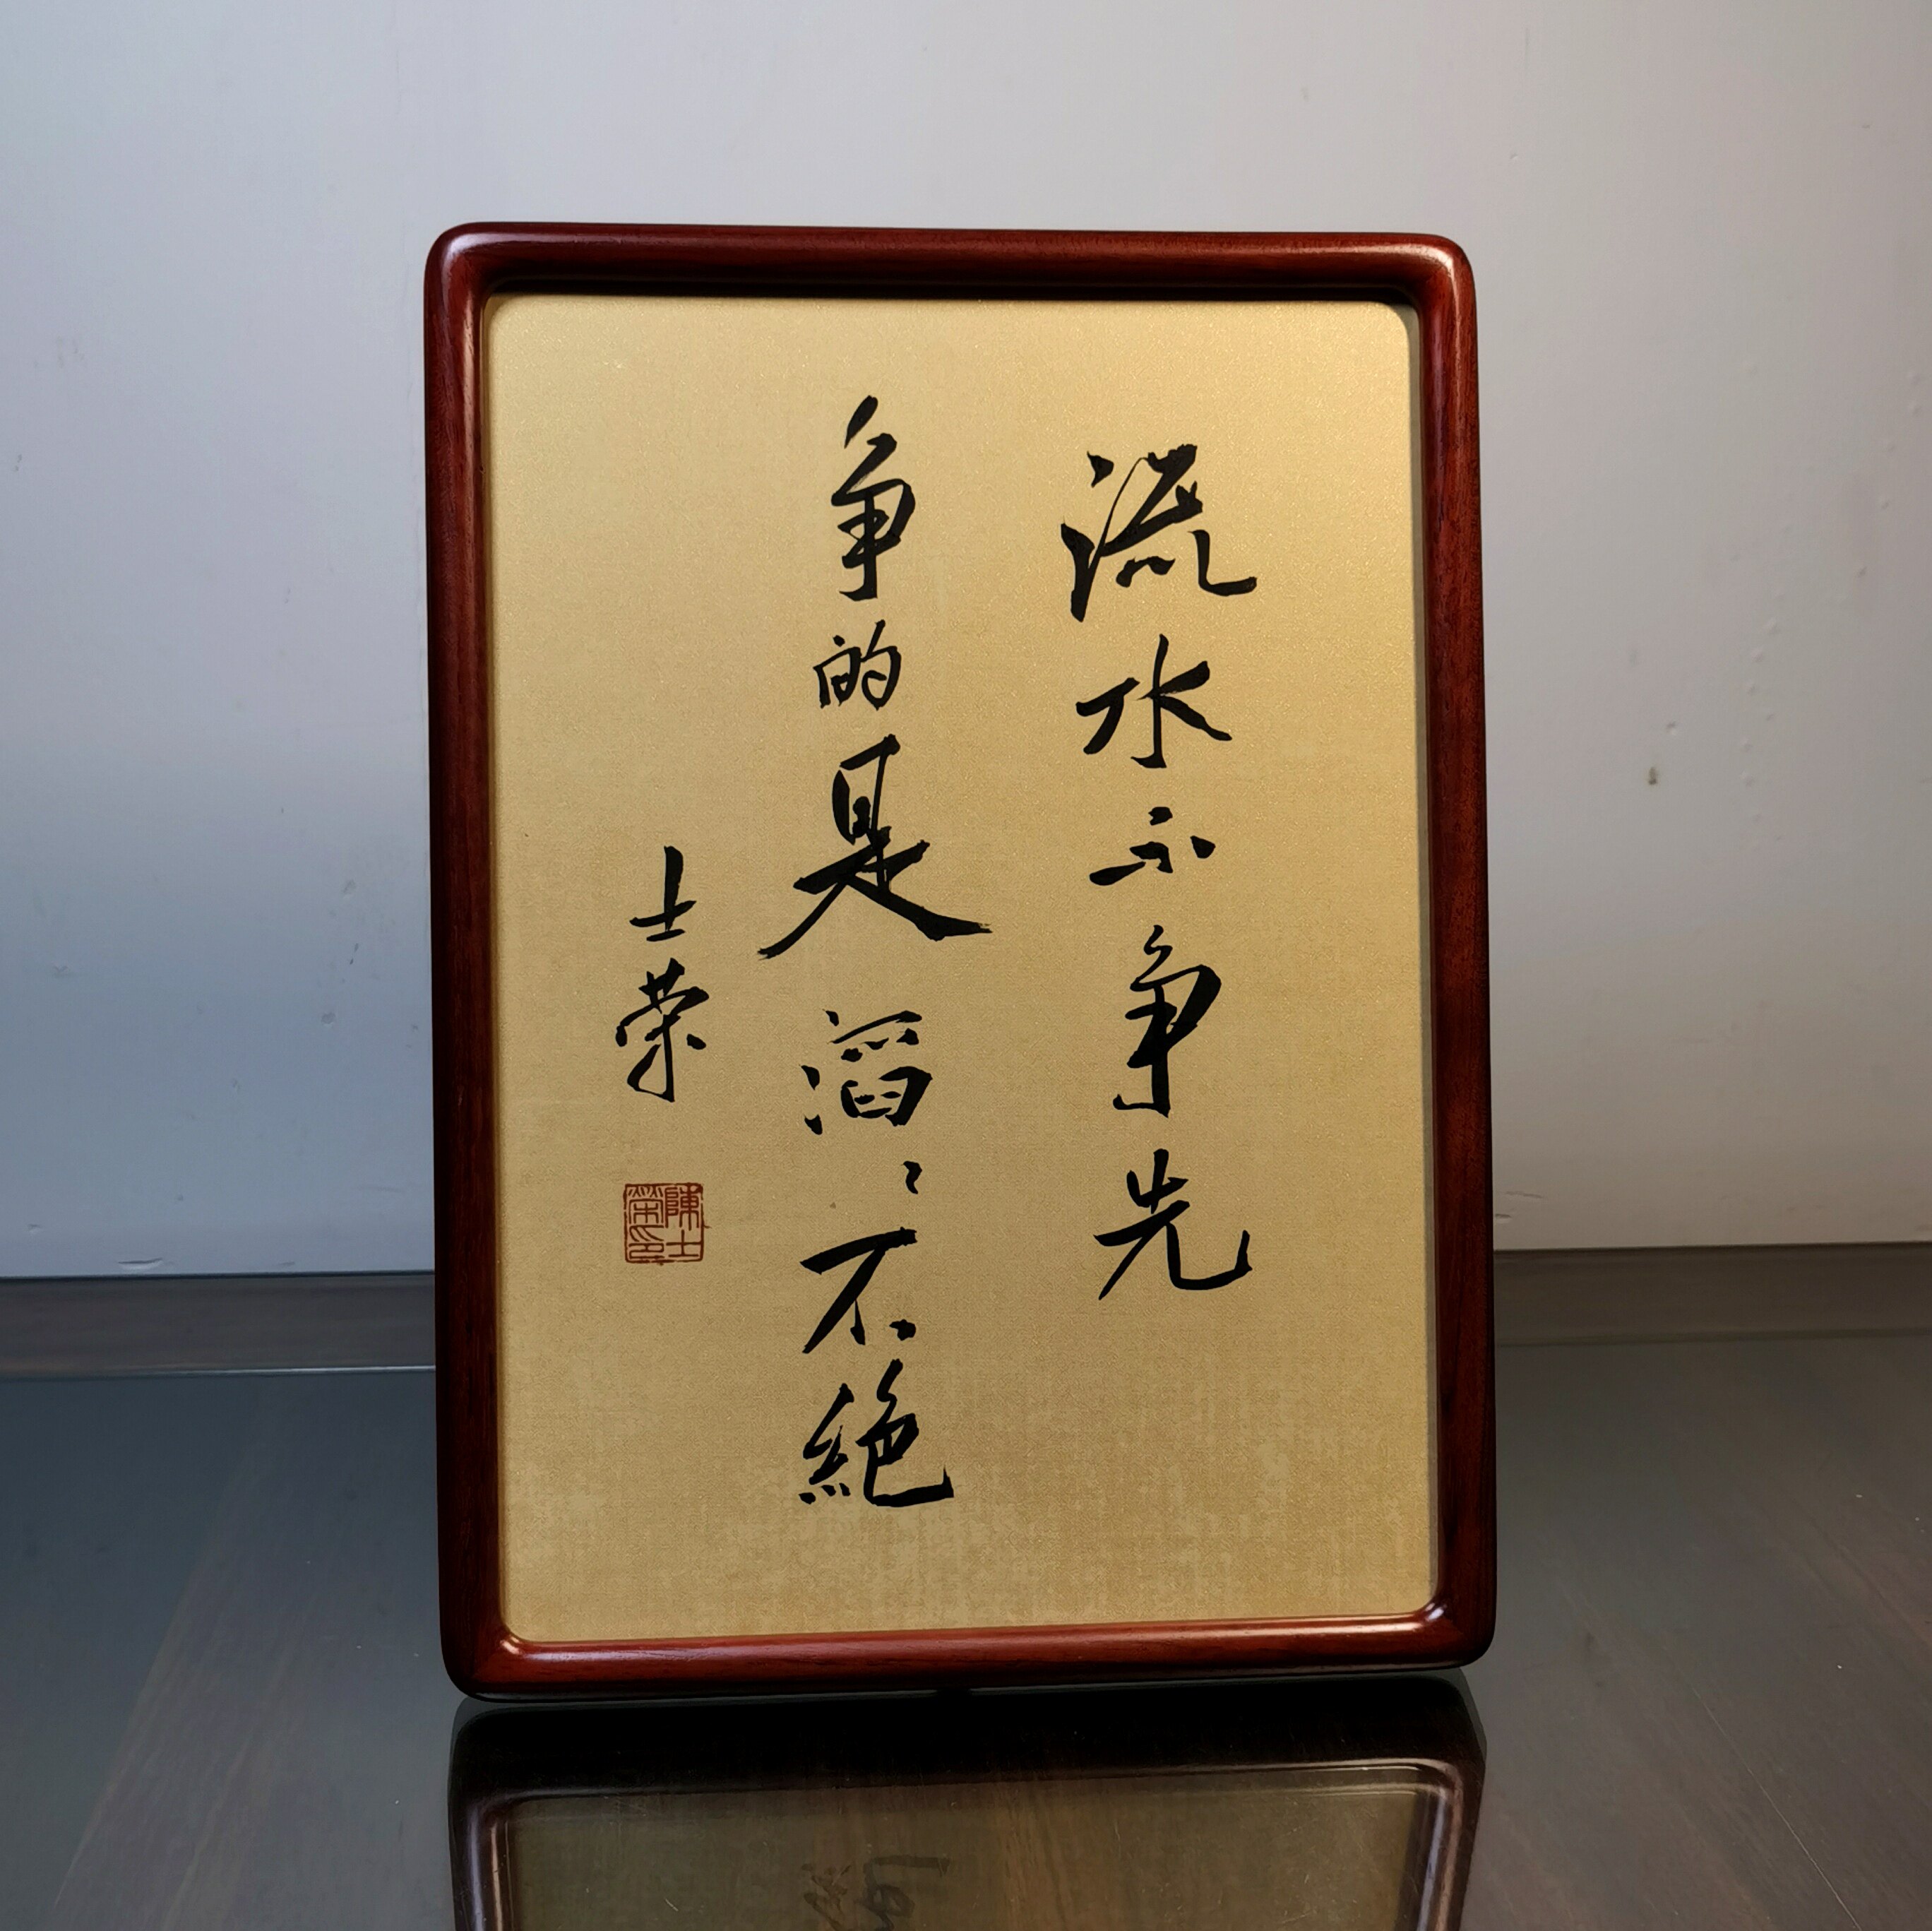 流水不争先
争的是滔〻不絕
士荣
陳士榮印